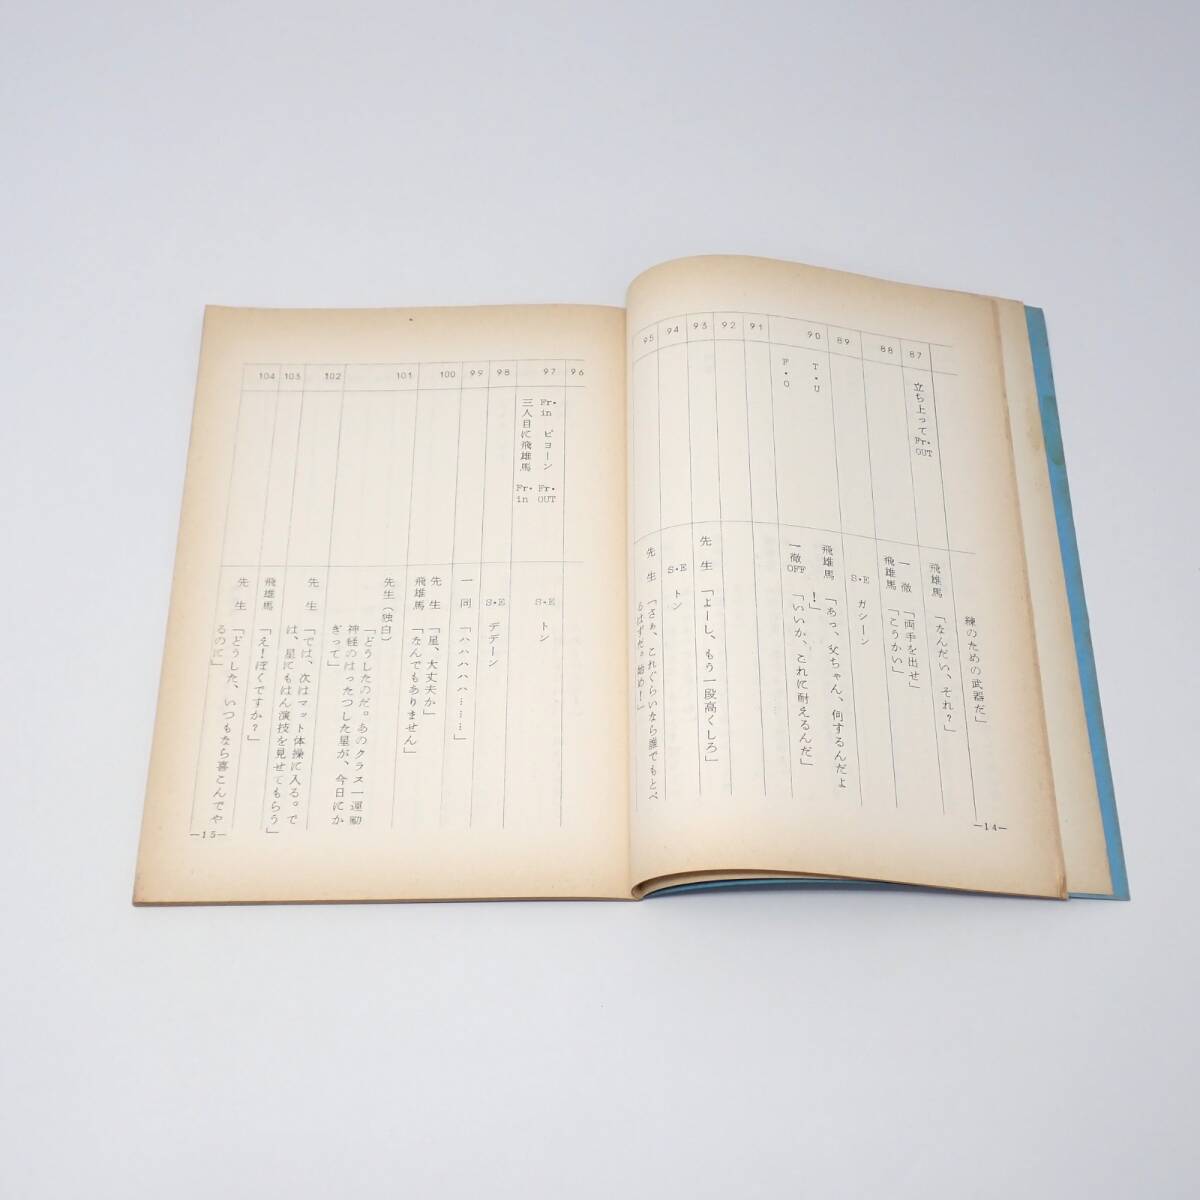 練のための武器だ」
87
立ち上ってFr・OUT
飛雄馬「なんだい、それ？」
88
一徹「両手を出せ」
飛雄馬「こうかい」
89
S・E ガシーン
90
T・U
飛雄馬「あっ、父ちゃん、何するんだよ
！」
F・O
一徹OFF「いいか、これに耐えるんだ」
91
92
93
先生「よーし、もう一段高くしろ」
94
S・E トン
95
先生「さぁ、これぐらいなら誰でもとべ
るはずだ。始め！」
—14—
96
97
Fr・in ピョーン Fr・OUT
三人目に飛雄馬 Fr・in
S・E トン
98
S・E デデーン
99
一同「ハハハハハ………」
100
先生「星、大丈夫か」
飛雄馬「なんでもありません」
101
先生（独白）
「どうしたのだ。あのクラス一運動
神経のはったつした星が、今日にか
ぎって」
102
先生「では、次はマット体操に入る。で
は、星にもはん演技を見せてもらう」
103
飛雄馬「え！ぼくですか？」
104
先生「どうした、いつもなら喜こんでや
るのに」
—15—